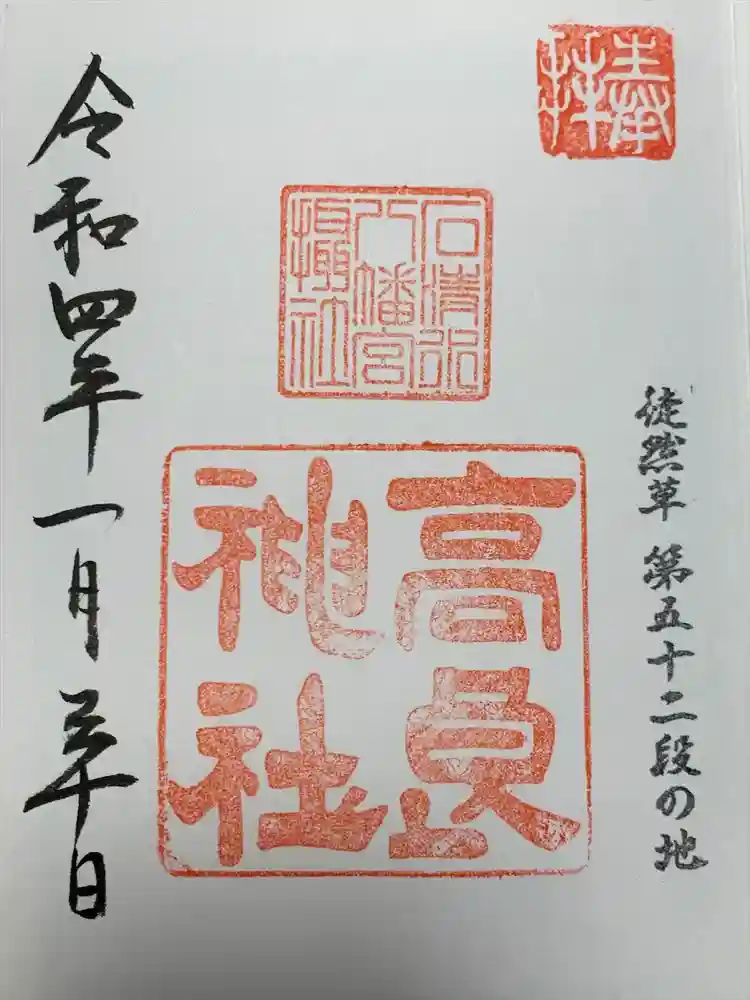 奉拝
石清水
八幡宮
攝社
徒然草 第五十二段の地
高良
神社
令和四年一月三十日